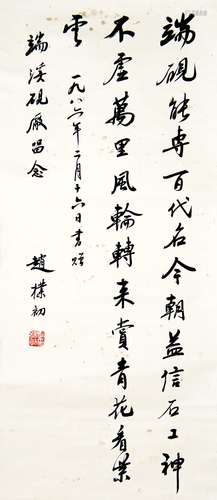 端硯能專百代名今朝益信石工神
不虛萬里風輪轉来賞青花看紫
雲 一九八六年二月十六日書贈
端溪硯廠留念
趙樸初